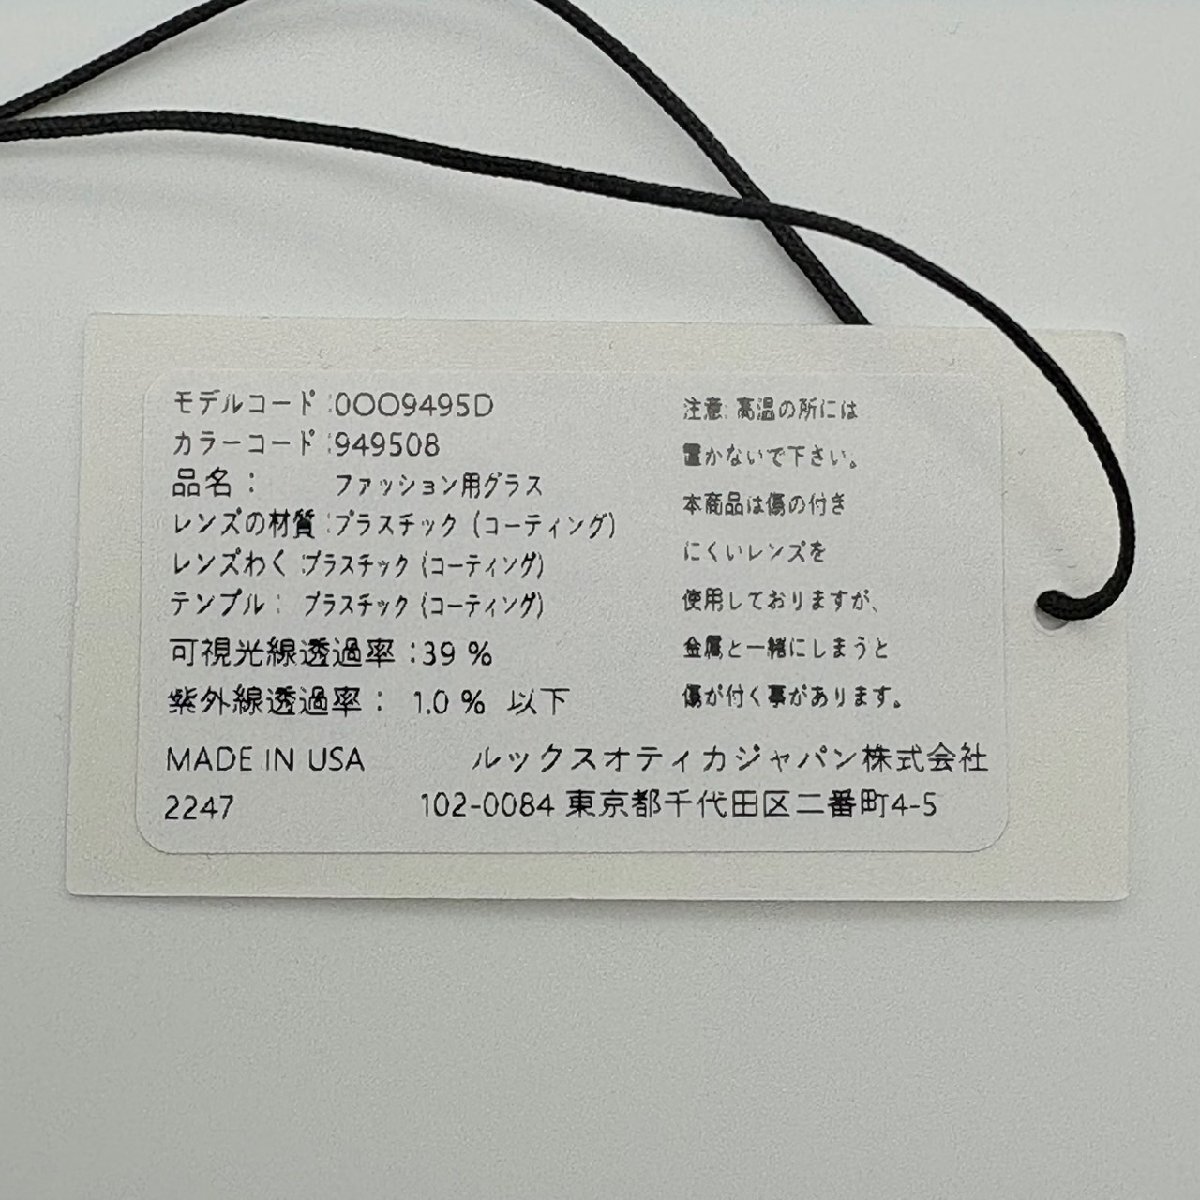 モデルコード:0OO9495D
カラーコード:949508
品名: ファッション用グラス
レンズの材質:プラスチック (コーティング)
レンズわく:プラスチック (コーティング)
テンプル: プラスチック (コーティング)
可視光線透過率:39 %
紫外線透過率: 1.0 % 以下
注意:高温の所には
置かないで下さい。
本商品は傷の付き
にくいレンズを
使用しておりますが、
金属と一緒にしまうと
傷が付く事があります。
MADE IN USA ルックスオティカジャパン株式会社
2247 102-0084 東京都千代田区二番町4-5